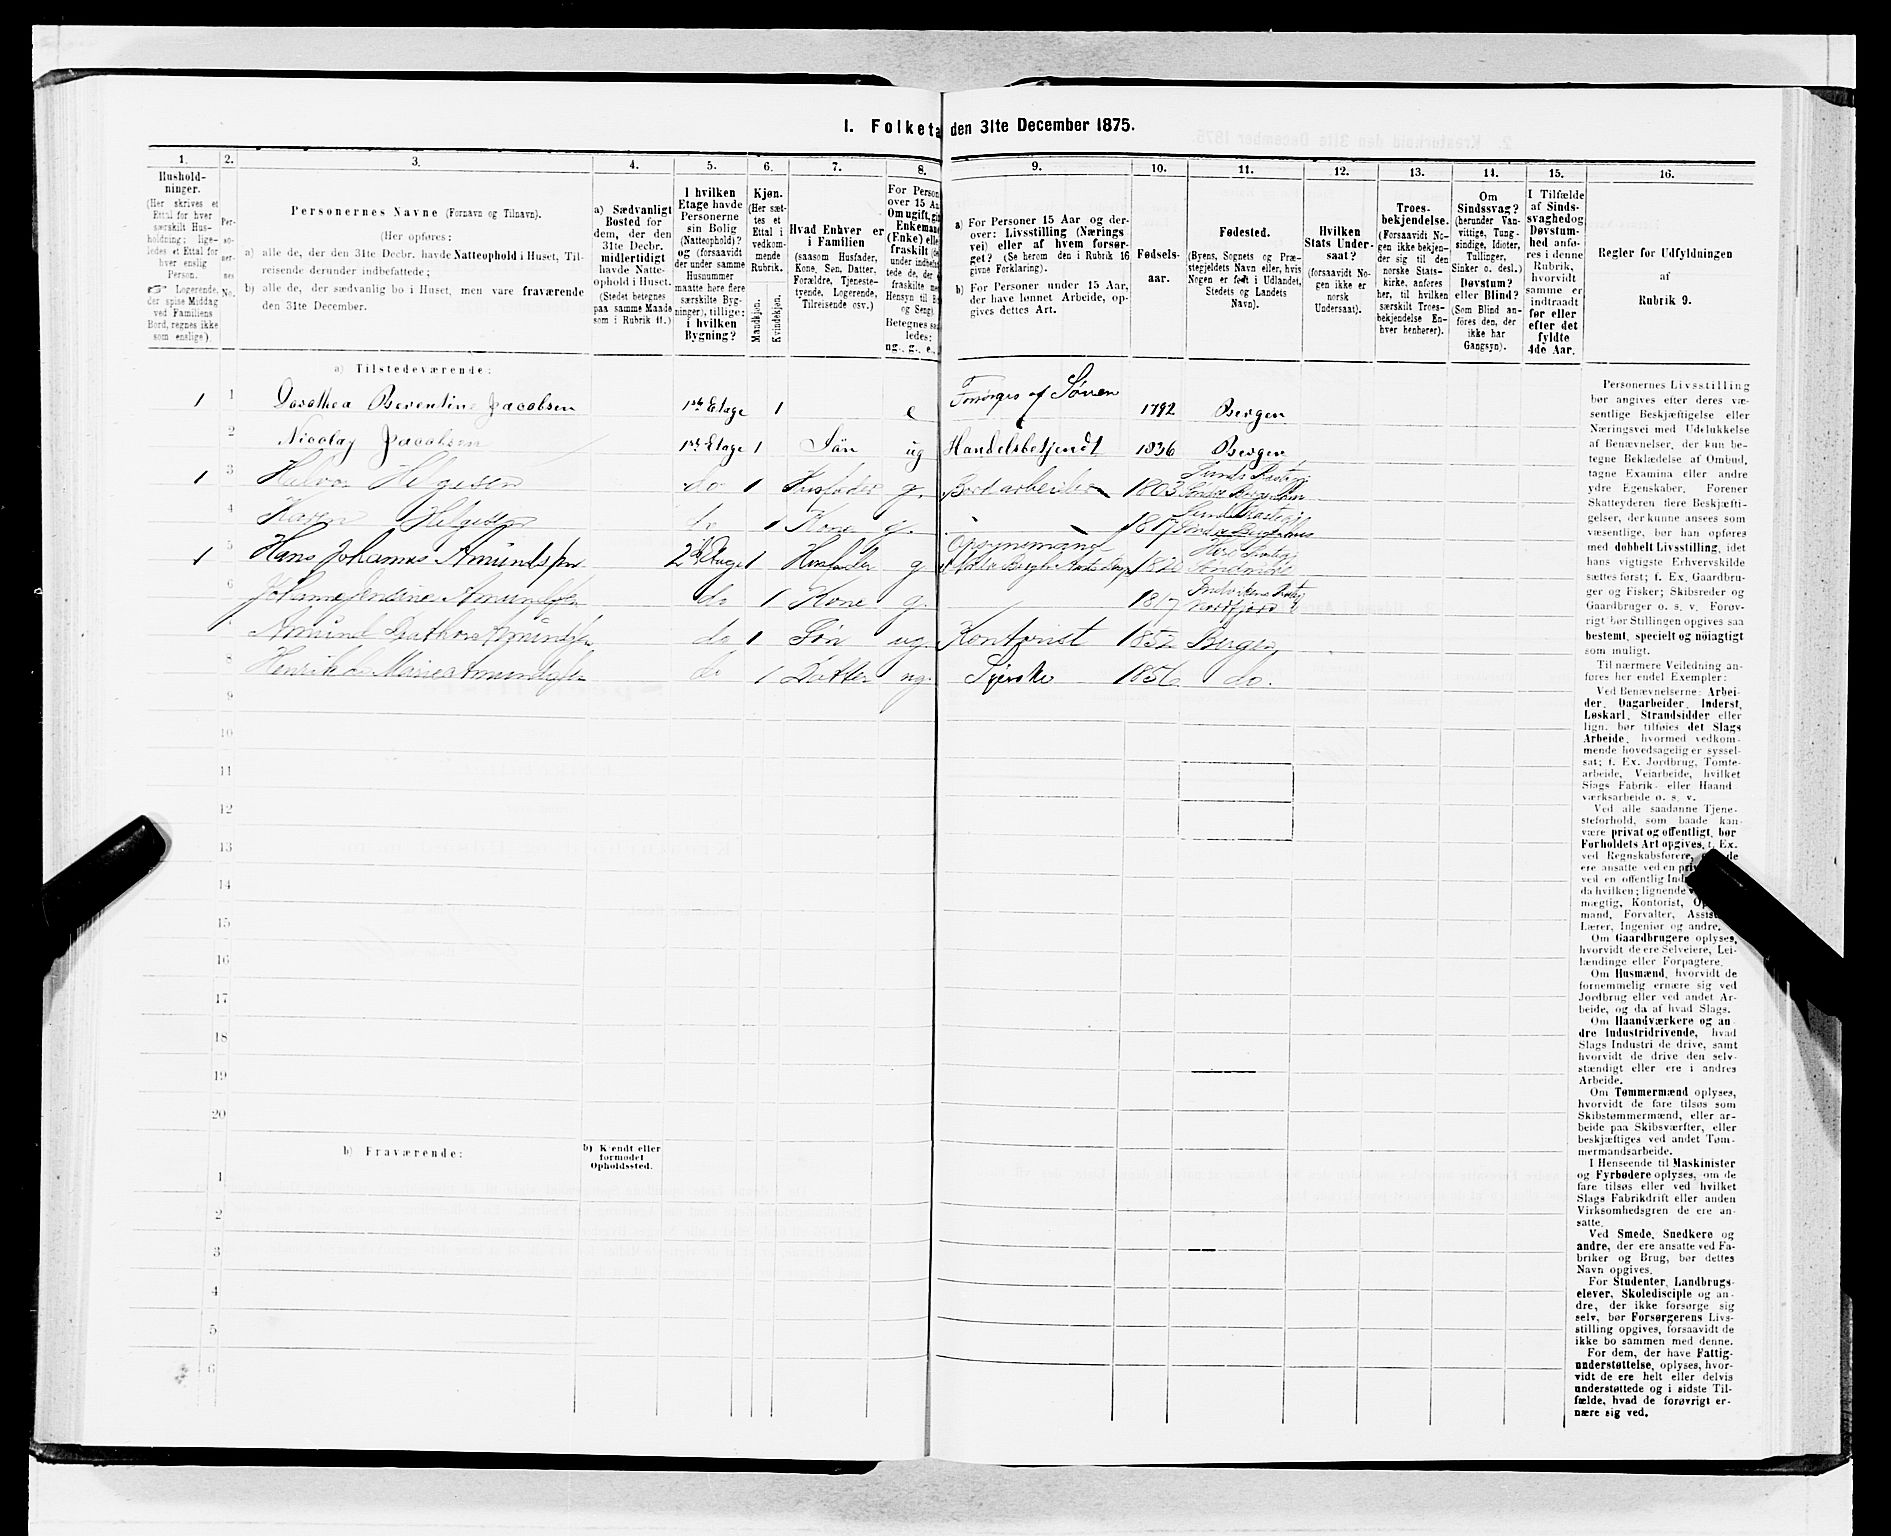 1. Folketæ
den 31te December 1875.
1.
2.
3.
4.
5.
6.
7.
8.
9.
10.
11.
12.
13.
14.
15.
16.
Hushold-
ninger.
(Her skrives et
Ettal for hver
særskilt Hus-
holdning; lige-
ledes et Ettal for
hver enslig
Person.
Logerende,
der spise Middag
ved Familiens
Bord, regnes ikke
som enslige).
Per-
so-
ner-
nes
No.
Personernes Navne (Fornavn og Tilnavn).
(Her opføres:
a) alle de, der den 31te Decbr. havde Natteophold i Huset, Til-
reisende derunder indbefattede;
b) alle de, der sædvanlig bo i Huset, men vare fraværende
den 31te December.
a) Sædvanligt
Bosted for
dem, der den
31te Decbr.
midlertidigt
havde Natte-
ophold i Huset.
(Stedet betegnes
paa samme Maade
som i Rubrik 11.)
I hvilken
Etage havde
Personerne
sin Bolig
(Natteophold)?
og (forsaavidt
der under samme
Husnummer
maatte høre flere
særskilte Byg-
ninger), tillige:
i hvilken
Bygning?
Kjøn.
(Her sæt-
tes et
Ettal i
vedkom-
mende
Rubrik.
Mandkjøn.
Kvindekjøn.
Hvad Enhver er
i Familien
(saasom Husfader,
Kone, Søn, Datter,
Forældre, Tjeneste-
tyende, Logerende,
Tilreisende osv.)
For Person
over 15 Aa
Om ugift, gi
Enkeman
(Enke) elle
fraskilt (d
under indbefa
tede de, der
fraskilte me
Hensyn til B
og Seng).
Betegnes saa
ledes:
ug., g., e.,
a) For Personer 15 Aar og der-
over: Livsstilling (Nærings
vei) eller af hvem forsør-
get? (Se herom den i Rubrik 16
givne Forklaring).
b) For Personer under 15 Aar,
der have lønnet Arbeide, op-
gives dettes Art.
Fødsels-
aar.
Fødested.
(Byens, Sognets og Præ-
stegjeldets Navn eller, hvis
Nogen er født i Udlandet,
Stedets og Landets
Navn).
Hvilken
Stats Under-
saat?
(forsaavidt No-
gen ikke er
norsk
Undersaat).
Troes-
bekjendelse.
(Forsaavidt No-
gen ikke bekjen-
der sig til den
norske Stats-
kirke, anføres
her, til hvilken
særskilt Troes-
bekjendelse En-
hver henhører).
Om
Sindssvag?
(herunder Van-
vittige, Tung-
sindige, Idioter,
Tullinger,
Sinker o. desl.)
Døvstum?
eller Blind?
(Som Blind an-
føres den, der
ikke har
Gangsyn).
I Tilfælde
af Sinds-
svaghed og
Døvstum-
hed anfø-
res i denne
Rubrik,
hvorvidt
samme er
indtraadt
før eller
efter det
fyldte
4de Aar.
Regler for Udfyldningen
af
Rubrik 9.
a) Tilstedeværende:
1 1 Dorothea Berentine Jacobsen 1ste Etage 1 e Forsørges af Sønnen 1792 Bergen
2 Nicolay Jacobsen 1ste Etage 1 Søn ug Handelsbetjendt 1836 Bergen
1 3 Helge Helgesen do 1 Husfader g. Bordarbeider 1803 Sunds Præstegj Søndre Bergenhus
4 Karen Helgesen do 1 Kone g. 1817 Sunds Præstegj Søndre Bergenhus
1 5 Hans Johannes Amundsen 2den Etage 1 Husfader g. Opsynsmand Herø Præstegj Søndmøre
6 Johanne Amundsen do 1 Kone g. 1817 Indvikens Præstegj Nordfjord
Amund Amundsen do 1 Søn ug. Kontorist 1852 Bergen
8 Henrikke Marie Amundsen do 1 Datter ug. Syerske 1856 do.
9
10
11
12
13
14
15
16
17
18
19
20
b) Fraværende:
b) Kjendt eller
formodet
Opholdssted.
1
2
3
4
5
6
Personernes Livsstilling
bør angives efter deres væ-
sentlige Beskjæftigelse eller
Næringsvei med Udelukkelse
af Benævnelser, der kun be-
tegne Beklædelse af Ombud,
tagne Examina eller andre
ydre Egenskaber. Forener
Skatteyderen flere Beskjæfti-
gelser, der kunne ansees som
væsentlige, bør han opføres
med dobbelt Livsstilling, idet
hans vigtigste Erhvervskilde
sættes først; f. Ex. Gaardbru-
ger og Fisker; Skibsreder og
Gaardbruger o. s. v. Forøv-
rigt bør Stillingen opgives saa
bestemt, specielt og nøiagtigt
som muligt.
Til nærmere Veiledning an-
føres her endel Exempler:
Ved Benævnelserne: Arbei-
der, Dagarbeider, Inderst,
Løskarl, Strandsidder eller
lign. bør tilføies det Slags
Arbeide, hvormed vedkom-
mende hovedsagelig er syssel-
sat; f. Ex. Jordbrug, Tomte-
arbeide, Veiarbeide, hvilket
Slags Fabrik- eller Haand
værksarbeide o. s. v.
Ved alle saadanne Tjene-
steforhold, som baade kan
være privat og offentligt, bør
Forholdets Art opgives, f. Ex.
ved Regnskabsførere,
ere ansatte ved en
ved en offentlig
da hvilken; lignende
mægtig, Kontorist,
mand, Forvalter,
Lærer, Ingeniør og andre.
Om Gaardbrugere oplyses,
hvorvidt de ere Selveiere, Lei-
lændinge eller Forpagtere.
Om Husmænd, hvorvidt de
fornemmelig ernære sig ved
Jordbrug eller ved andet Ar-
beide, og da af hvad Slags.
Om Haandværkere og an
dre Industridrivende, hvad
Slags Industri de drive, samt
hvorvidt de drive den selv-
stændigt eller ere i andres
Arbeide.
Om Tømmermænd oplyses,
hvorvidt de fare tilsøs som
Skibstømmermænd, eller ar-
beide paa Skibsværfter, eller
beskjæftiges ved andet Tøm-
mermandsarbeide.
I Henseende til Maskinister
og Fyrbødere oplyses, om de
fare tilsøs eller ved hvilket
Slags Fabrikdrift eller anden
Virksomhedsgren de ere an-
satte.
Ved Smede, Snedkere og
andre, der ere ansatte ved Fa-
briker og Brug, bør dettes
Navn opgives.
For Studenter, Landbrugs-
elever, Skoledisciple og an-
dre, der ikke forsørge sig
selv, bør Forsørgerens Livs-
stilling opgives, forsaavidt de
ikke bo sammen med denne.
For dem, der have Fattig-
understøttelse, oplyses, hvor-
vidt de ere helt eller delvis
understøttede og i sidste Til-
fælde, hvad de forøvrigt er-
nære sig ved.